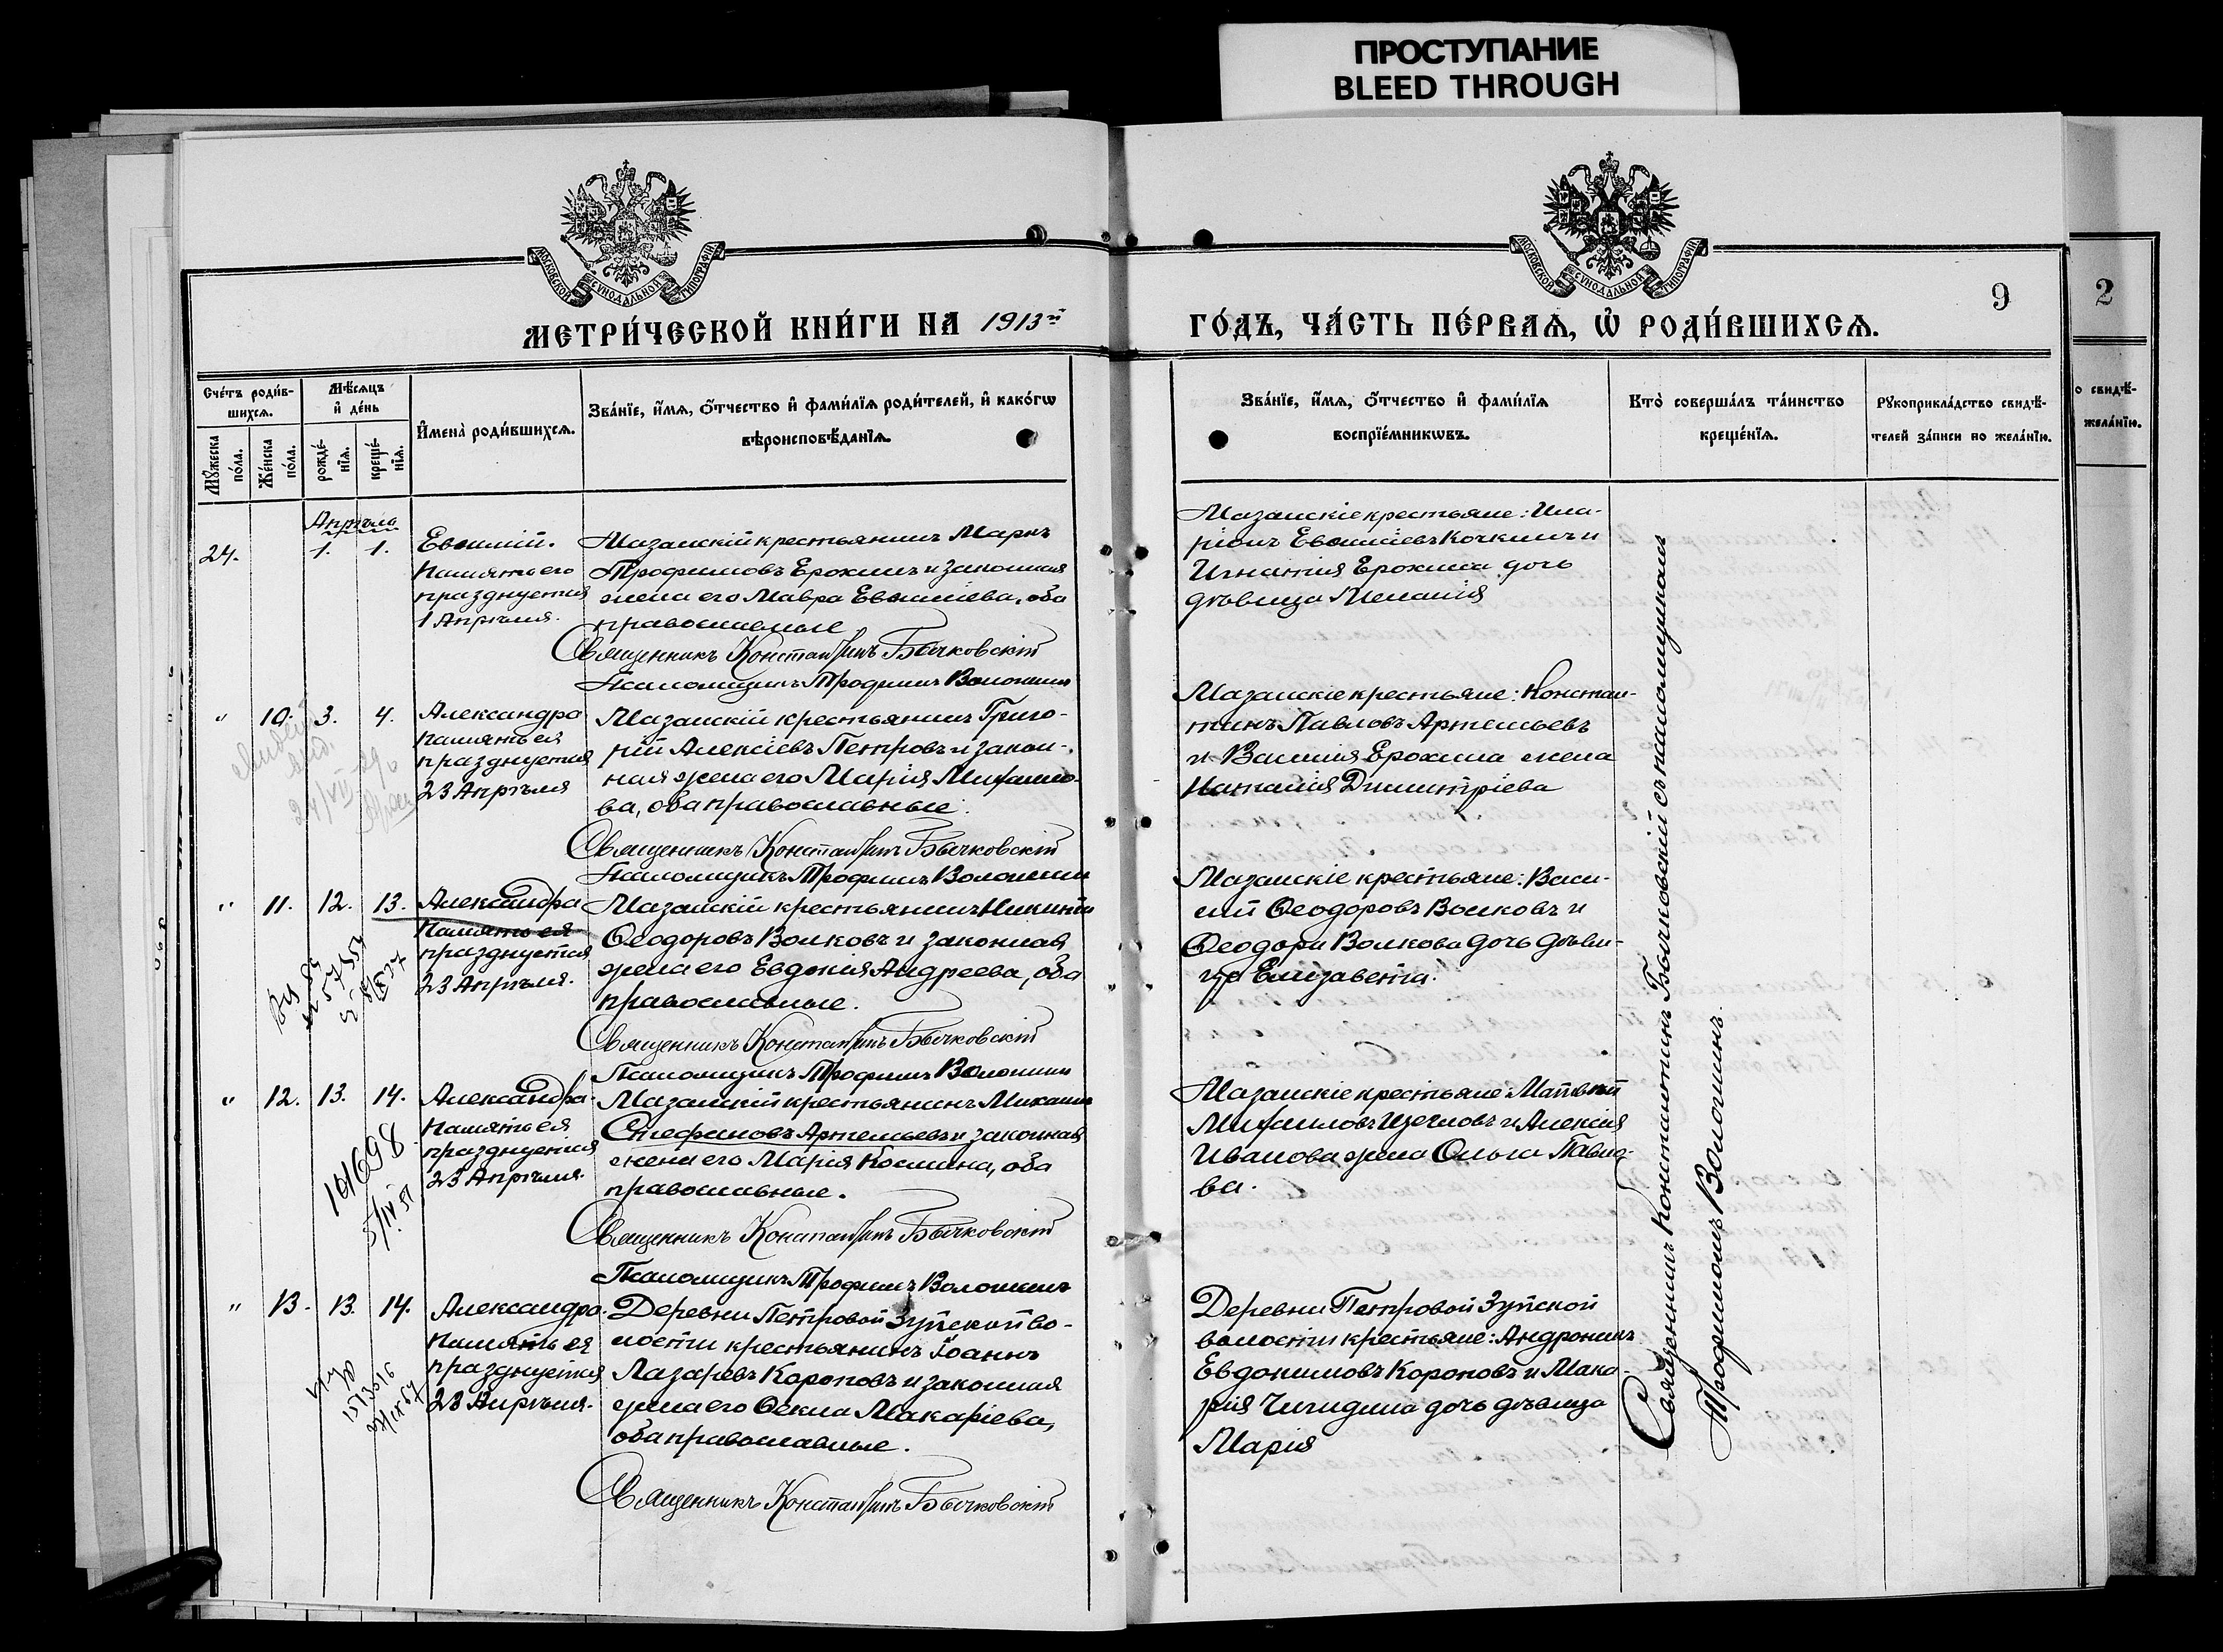 ПРОСТУПАНИЕ
BLEED THROUGH
МОСКОВСКОЙ СУНОДАЛЬНОЙ ТИПОГРАФІИ
МОСКОВСКОЙ СУНОДАЛЬНОЙ ТИПОГРАФІИ
9
2
МЕТРИ́ЧЕСКОЙ КНИ́ГИ НА 1913й
ГО́ДЪ, ЧА́СТЬ ПЕ́РВАѦ, Ѽ РОДИ́ВШИХСѦ.
Сче́тъ роди́в-
шихсѧ.
Мѣ́сѧцъ
и҆ де́нь
Мꙋ́жеска
по́ла.
Же́нска
по́ла.
рожде́-
нїѧ.
креще́-
нїѧ.
И҆мена̀ роди́вшихсѧ.
Зва́нїе, и҆́мѧ, ѻ҆́тчество и҆ фами́лїѧ роди́телей, и҆ како́гѡ
вѣроисповѣ́данїѧ.
Зва́нїе, и҆́мѧ, ѻ҆́тчество и҆ фами́лїѧ
воспрїе́мникѡвъ.
Кто̀ соверша́лъ та́инство
креще́нїѧ.
Рꙋкоприкла́дство свидѣ́-
телей за́писи по жела́нїю.
о свидѣ́-
жела́нїю.
Апрѣль
24.
1.
1.
Евѳимій.
Память его
празднуется
1 Апрѣля.
Мазанскій крестьянинъ Маркъ
Трофимовъ Ерохинъ и законная
жена его Мавра Евѳиміева, оба
православные
Священникъ Константинъ Бычковскій
Псаломщикъ Трофимъ Волошинъ
Мазанскіе крестьяне: Ила-
ріонъ Евѳиміевъ Кочкинъ и
Игнатія Ерохина дочь
дѣвица Меланія
" 10. 3. 4.
Александра
Память ея
празднуется
23 Апрѣля
Мазанскій крестьянинъ Григо-
рій Алексіевъ Петровъ и закон-
ная жена его Марія Михаило-
ва, оба православные.
Священникъ Константинъ Бычковскій
Псаломщикъ Трофимъ Волошинъ
Мазанскіе крестьяне: Констан-
тинъ Павловъ Артемьевъ
и Василія Ерохина жена
Наталія Димитріева
" 11. 12. 13.
Александра
Память ея
празднуется
23 Апрѣля.
Мазанскій крестьянинъ Никита
Ѳеодоровъ Волковъ и законная
жена его Евдокія Андреева, оба
православные.
Священникъ Константинъ Бычковскій
Псаломщикъ Трофимъ Волошинъ
Мазанскіе крестьяне: Васи-
лій Ѳеодоровъ Волковъ и
Ѳеодора Волкова дочь дѣви-
ца Елизавета.
" 12. 13. 14.
101698
5/IV 51
Александра.
Память ея
празднуется
23 Апрѣля.
Мазанскій крестьянинъ Михаилъ
Стефановъ Артемьевъ и законная
жена его Марія Космина, оба
православные.
Священникъ Константинъ Бычковскій
Псаломщикъ Трофимъ Волошинъ
Мазанскіе крестьяне: Матвѣй
Михаиловъ и Алексія
Иванова жена Ольга Павло-
ва.
" 13. 13. 14.
Александра.
Память ея
празднуется
23 Апрѣля.
Деревни Петровой Зуйской во-
лости крестьянинъ Іоаннъ
Лазаревъ Коротовъ и законная
жена его Ѳекла Макаріева,
оба православные.
Священникъ Константинъ Бычковскій
Деревни Петровой Зуйской
волости крестьяне: Андроникъ
Евдокимовъ Коротовъ и Мака-
рія Чигидина дочь дѣвица
Марія
Священникъ Константинъ Бычковскій съ псаломщикомъ
Трофимомъ Волошинъ.